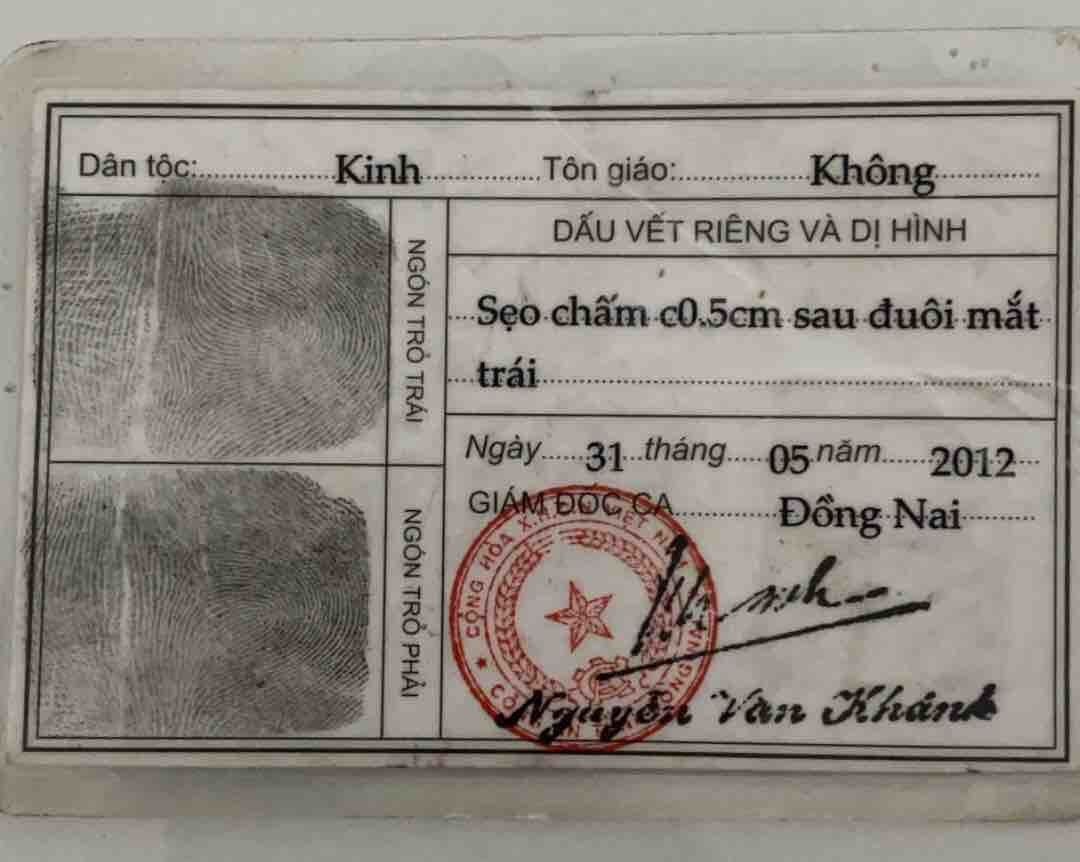 Dân tộc: Kinh Tôn giáo: Không
NGÓN TRỎ TRÁI
DẤU VẾT RIÊNG VÀ DỊ HÌNH
Sẹo chấm c0.5cm sau đuôi mắt
trái
NGÓN TRỎ PHẢI
Ngày 31 tháng 05 năm 2012
GIÁM ĐỐC CA Đồng Nai
CỘNG HÒA X.H.C.N VIỆT NAM
Nguyễn Văn Khánh